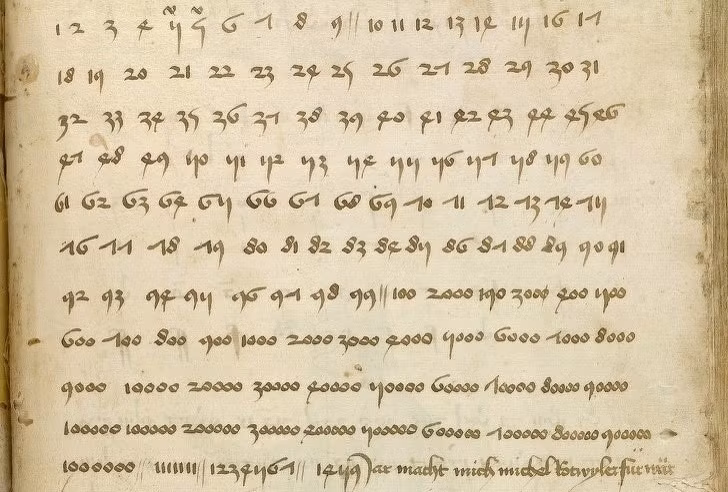 1 2 3 4 5 5 6 7 8 9 // 10 11 12 13 14 15 16 17
18 19 20 21 22 23 24 25 26 27 28 29 30 31
32 33 34 35 36 37 38 39 40 41 42 43 44 45 46
47 48 49 50 51 52 53 54 55 56 57 58 59 60
61 62 63 64 65 66 67 68 69 70 71 72 73 74 75
76 77 78 79 80 81 82 83 84 85 86 87 88 89 90 91
92 93 94 95 96 97 98 99 // 100 2000 190 3000 400 500
600 700 800 900 1000 2000 3000 4000 5000 6000 7000 8000
9000 10000 20000 30000 40000 50000 60000 70000 80000 90000
100000 100000 200000 300000 400000 500000 600000 700000 800000 900000
1000000 // 11111111 // 1234567 // 1459 Jar macht mich michel Rotwyler für war